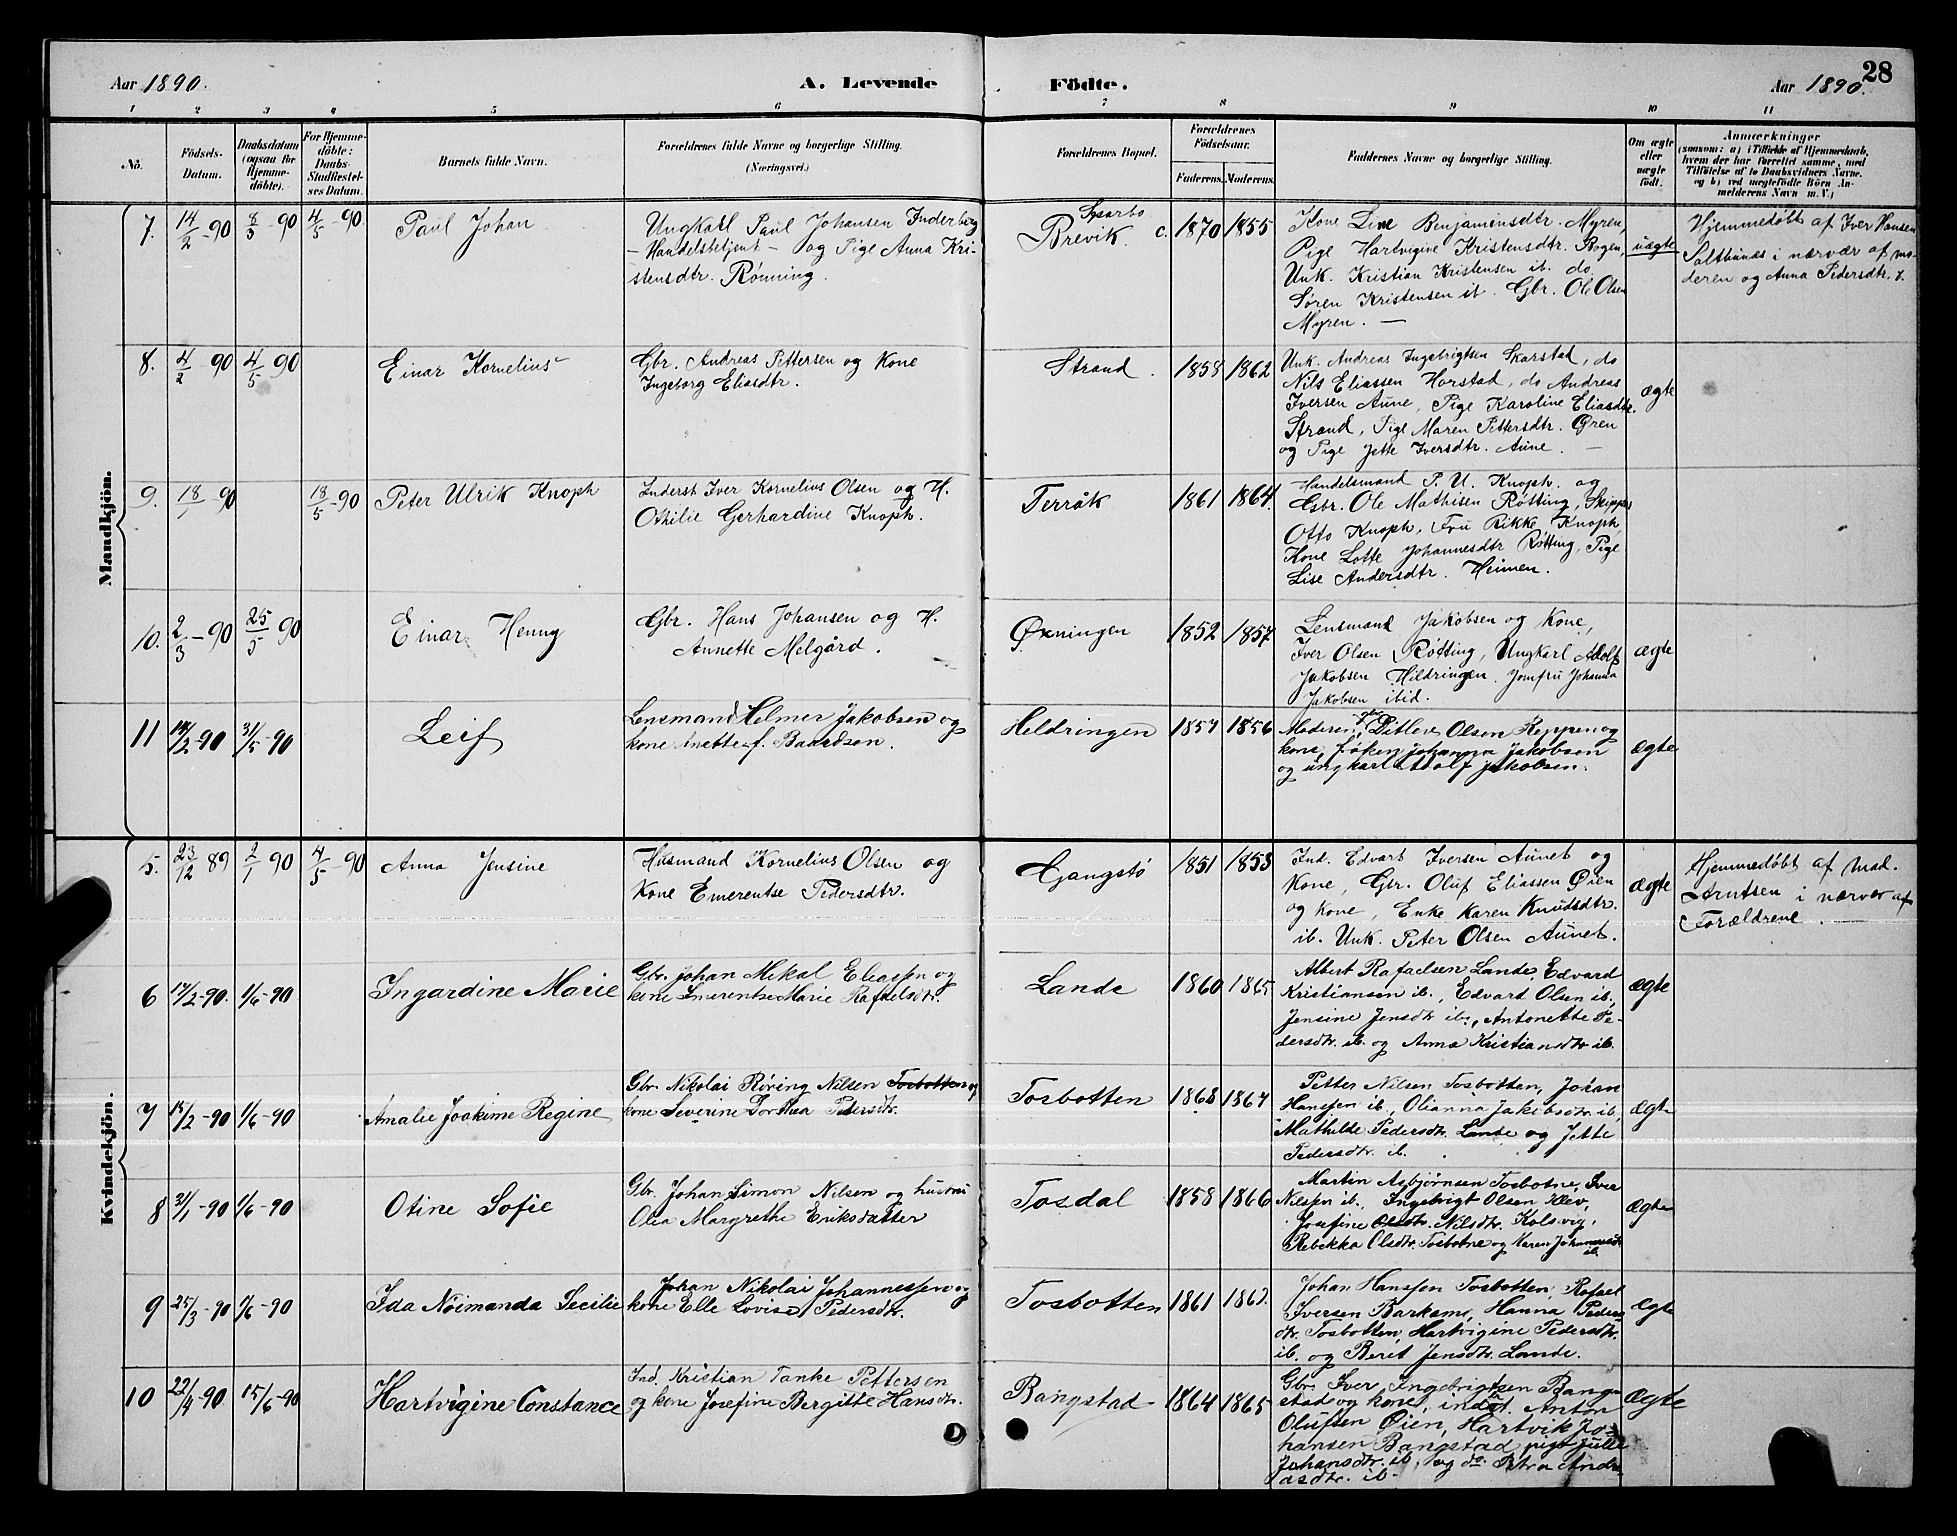 Aar 1890.
A. Levende
Födte.
Aar 1890.
28
1 2 3 4 5 6 7 8 9 10 11
No.
Födsels-
Datum.
Daabsdatum
(ogsaa for
Hjemme-
döbte).
For Hjemme-
döbte:
Daabs-
Stadfæstel-
ses Datum.
Barnets fulde Navn.
Forældrenes fulde Navne og borgerlige Stilling.
(Næringsvei.)
Forældrenes Bopæl.
Forældrenes
Födselsaar.
Faderens. Moderens.
Faddernes Navne og borgerlige Stilling.
Om ægte
eller
uægte
födt.
Anmærkninger
(saasom: a) i Tilfælde af Hjemmedaab,
hvem der har forrettet samme, med
Tilföielse af to Daabsvidners Navne.
og b) ved uægtefödte Börn An-
melderens Navn m. V.)
Mandkjön.
7. 14/2 -90 8/3 -90 4/5 -90 Paul Johan
Ungkarl Paul Johansen Inderberg
- Handelsbetjent - og Pige Anna Kri-
stensdtr. Rønning.
Brevik.
1870 1855
Kone Line Benjaminsdtr. Myren,
Pige Hartvigine Kristensdtr. Bogen,
Unk. Kristian Kristensen ib. do
Søren Kristensen ib. Gbr. Ole Olsen
Myren. —
uægte
Hjemmedøbt af Iver Hansen
i nærvær af mo-
deren og Anna Pedersdtr.
8. 4/2 90 4/5 90 Einar Kornelius
Gbr. Andreas Pettersen og Kone
Ingeborg Eliasdtr.
Strand.
1858 1862
Unk. Andreas Ingebrigtsen Skarstad, do
Nils Eliassen Horstad, do Andreas
Iversen Aune, Pige Karoline Eliasdtr.
Strand, Pige Maren Pettersdtr. Øren
og Pige Jette Iversdtr. Aune. —
ægte
9. 18/1 90 18/5 -90 Peter Ulrik Knoph
Inderst Iver Kornelius Olsen og H.
Othilie Gerhardine Knoph.
Terråk
1861 1864.
Handelsmand P. U. Knoph. og
Gbr. Ole Mathisen Røtting, Skipper
Otto Knoph, Fru Rikke Knoph,
Kone Lotte Johannesdtr Røtting, Pige
Lise Andersdtr. Heimen.
10. 2/3 -90 25/5 90 Einar Henny
Gbr. Hans Johansen og H.
Annette Melgård.
Øxningen
1852 1857
Lensmand Jakobsen og Kone,
Iver Olsen Røtting, Ungkarl Adolf
Jakobsen Hildringen. Jomfru Johanna
Jakobsen ibid.
ægte
11 31/5 -90 Leif
Lensmand Helmer Jakobsen og
kone Anette f. Baardsen.
Heldringen
1857 1856
Moderen, Ditlev Olsen Reppen og
kone, frøken Johanna Jakobsen
og ungkarl Adolf Jakobsen.
ægte
Kvindekjön.
5. 23/12 89 2/1 90 4/5 -90 Anna Jensine
Husmand Kornelius Olsen og
Kone Emerentse Pedersdtr.
Gangstø
1851 1853
Ind. Edvart Iversen Aunet og
Kone, Gbr. Oluf Eliassen Øien
og Kone, Enke Karen Knudsdtr.
ib. Unk. Peter Olsen Aunet.
ægte
Hjemmedøbt af Mad.
Arntsen i nærvær af
Forældrene.
6 17/2-90. 1/6-90 Ingardine Marie
Gbr. Johan Mikal Eliassen og
kone Emerentse Marie Rafaelsdtr.
Lande
1860 1865
Albert Rafaelsen Lande, Edvard
Kristiansen ib., Edvart Olsen ib.,
Jensine Jensdtr ib., Antonette Pe-
dersdtr. ib. og Anna Kristiansdtr ib.
ægte
7 15/2-90 1/6-90 Amalie Joakime Regine
Gbr. Nikolai Røring Nilsen Tosbotten og
kone Severine Dorthea Pedersdtr.
Tosbotten
1868 1867
Petter Nilsen Tosbotten, Johan
Hanssen ib., Olianna Jakobsdtr. ib,
Mathilde Pedersdtr. Lande og Jette
Pedersdtr. ib.
ægte
8 31/1-90 1/6-90 Otine Sofie
Gbr. Johan Simon Nilsen og hustru
Olea Margrethe Eriksdatter
Tosdal
1858 1866
Martin Asbjørnsen Tosbotne, Iver
Nilssen ib., Ingebrigt Olsen Kllev,
Josefine Olsdtr. Nilsdtr. Kolsvig,
Rebekka Olsdtr. Tosbotne og Karen Johannesdtr
ib.
Ægte
9 25/3-90 1/6-90 Ida Nöimanda Secilie
Johan Nikolai Johannessen og
kone Elle Lovise Pedersdtr.
Tosbotten
1861 1863.
Johan Hanssen Tosbotten, Rafael
Iversen Barkemo, Hanna Peders-
dtr. Tosbotten, Hartvigine Pedersdtr.
ib. og Beret Jensdtr. Lande.
Ægte
10 22/4-90 15/6-90 Hartvigine Constance
Ind. Kristian Tanke Pettersen
og kone Josefine Bergitte Hansdtr.
Bangstad
1864 1865
Gbr. Iver Ingebrigtsen Bang-
stad og kone, Anton
Olufsen Øien, Hartvik Jo-
hansen Bangstad, pige Julie
Johansdtr. ib. og do. Petra Andre-
asdtr. ib.
Ægte